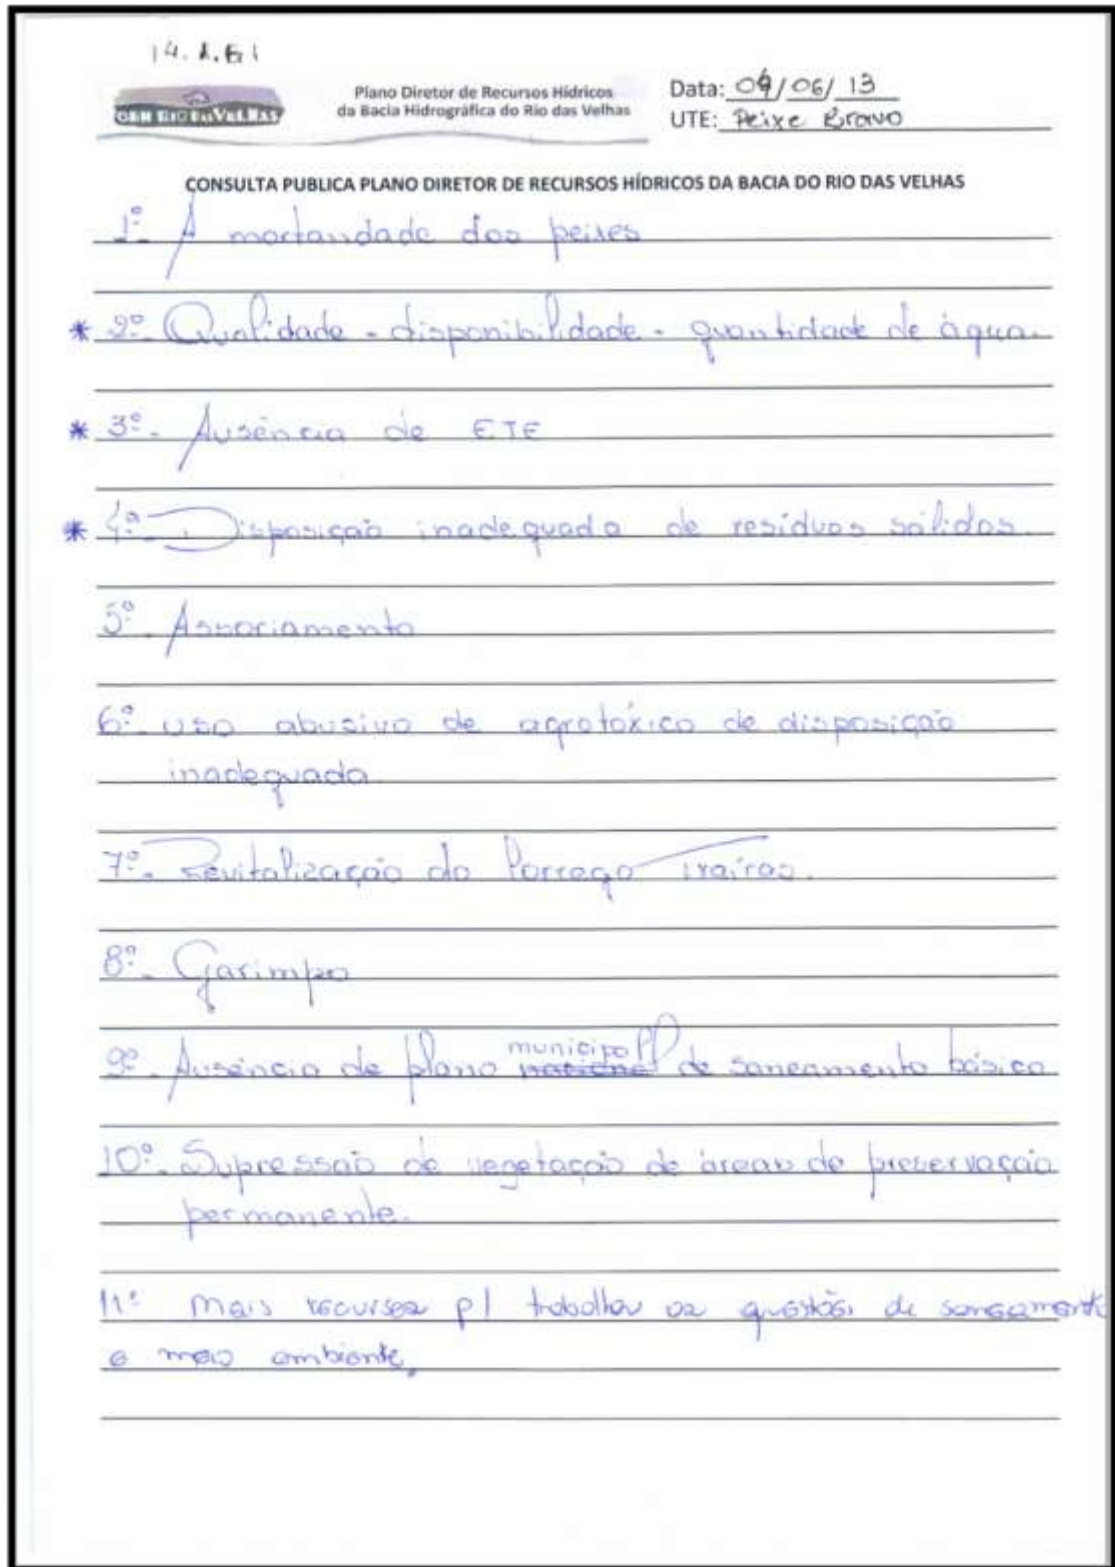 Plano Diretor de Recursos Hídricos
da Bacia Hidrográfica do Rio das Velhas
CBH RIO DAS VELHAS
Data: 04/06/13
UTE: Peixe Bravo
CONSULTA PUBLICA PLANO DIRETOR DE RECURSOS HÍDRICOS DA BACIA DO RIO DAS VELHAS
1º. A mortandade dos peixes
* 2º. Qualidade - disponibilidade - quantidade de água.
* 3º. Ausência de ETE
* 4º. Disposição inadequada de resíduos sólidos.
5º. Assoriamento
6º. uso abusivo de agrotóxico de disposição
inadequada.
7º. Revitalização do Corrego Traíras.
8º. Garimpo
9º. Ausência de plano municipal de saneamento básico
10º. Supressão de vegetação de áreas de preservação
permanente.
11º mais recursos p/ trabalhar as questões de saneamento
e meio ambiente.